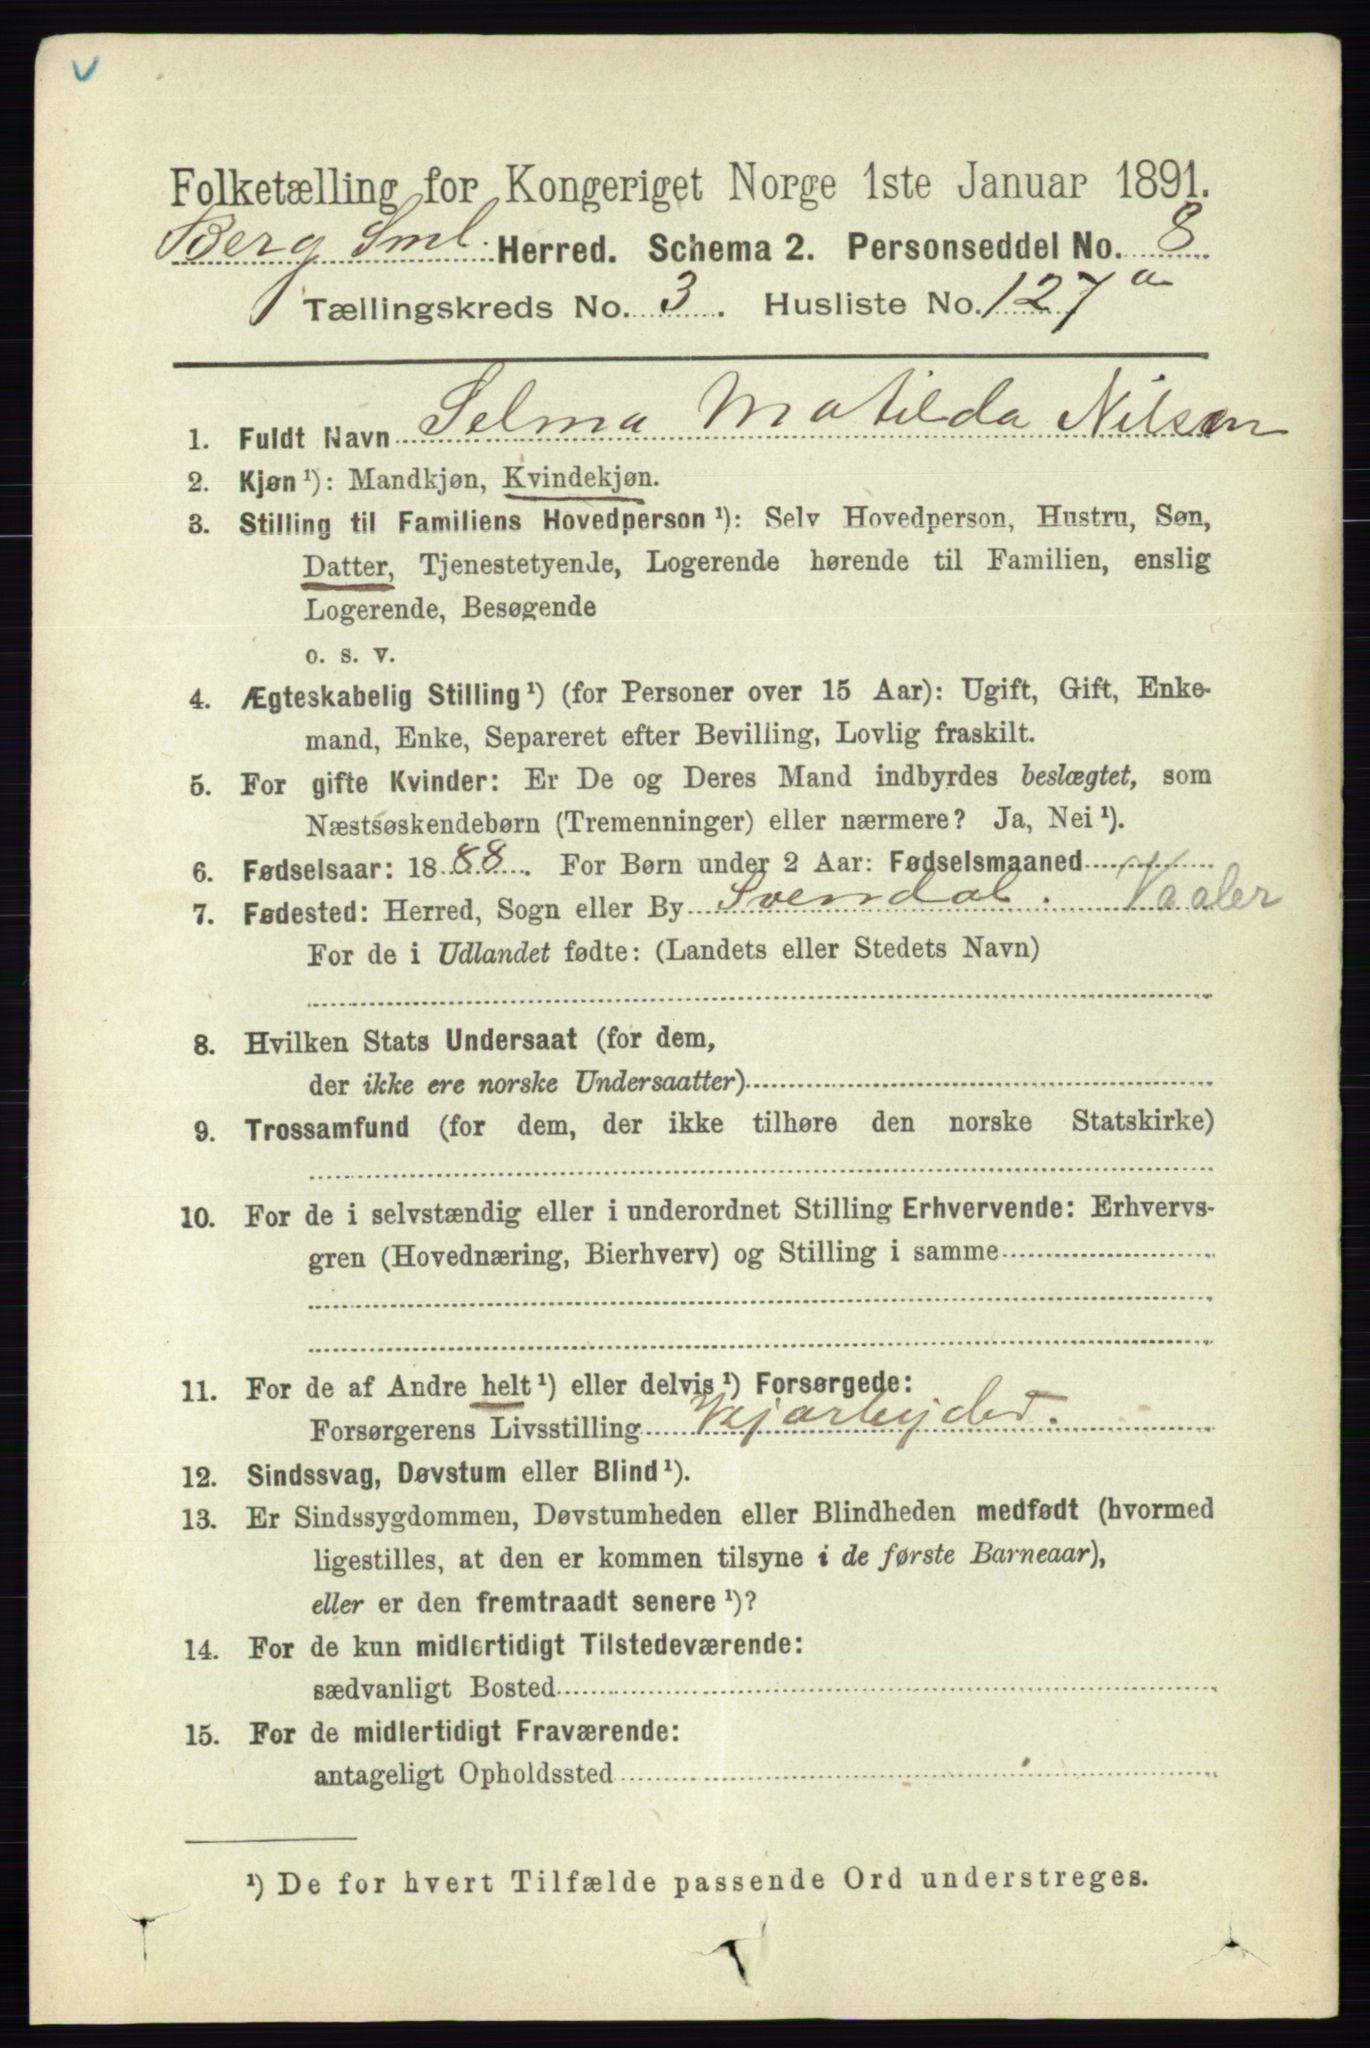 Folketælling for Kongeriget Norge 1ste Januar 1891.
Berg Sml. Herred. Schema 2. Personseddel No. 8
Tællingskreds No. 3. Husliste No. 127 a
1. Fuldt Navn Selma Matilda Nilsen
2. Kjøn ¹): Mandkjøn, Kvindekjøn.
3. Stilling til Familiens Hovedperson ¹): Selv Hovedperson, Hustru, Søn,
Datter, Tjenestetyende, Logerende hørende til Familien, enslig
Logerende, Besøgende
o. s. v.
4. Ægteskabelig Stilling ¹) (for Personer over 15 Aar): Ugift, Gift, Enke-
mand, Enke, Separeret efter Bevilling, Lovlig fraskilt.
5. For gifte Kvinder: Er De og Deres Mand indbyrdes beslægtet, som
Næstsøskendebørn (Tremenninger) eller nærmere? Ja, Nei ¹).
6. Fødselsaar: 1888. For Børn under 2 Aar: Fødselsmaaned
7. Fødested: Herred, Sogn eller By Svendal. Vaaler
For de i Udlandet fødte: (Landets eller Stedets Navn)
8. Hvilken Stats Undersaat (for dem,
der ikke ere norske Undersaatter)
9. Trossamfund (for dem, der ikke tilhøre den norske Statskirke)
10. For de i selvstændig eller i underordnet Stilling Erhvervende: Erhvervs-
gren (Hovednæring, Bierhverv) og Stilling i samme
11. For de af Andre helt ¹) eller delvis ¹) Forsørgede:
Forsørgerens Livsstilling Vejarbejder.
12. Sindssvag, Døvstum eller Blind ¹).
13. Er Sindssygdommen, Døvstumheden eller Blindheden medfødt (hvormed
ligestilles, at den er kommen tilsyne i de første Barneaar),
eller er den fremtraadt senere ¹)?
14. For de kun midlertidigt Tilstedeværende:
sædvanligt Bosted
15. For de midlertidigt Fraværende:
antageligt Opholdssted
¹) De for hvert Tilfælde passende Ord understreges.